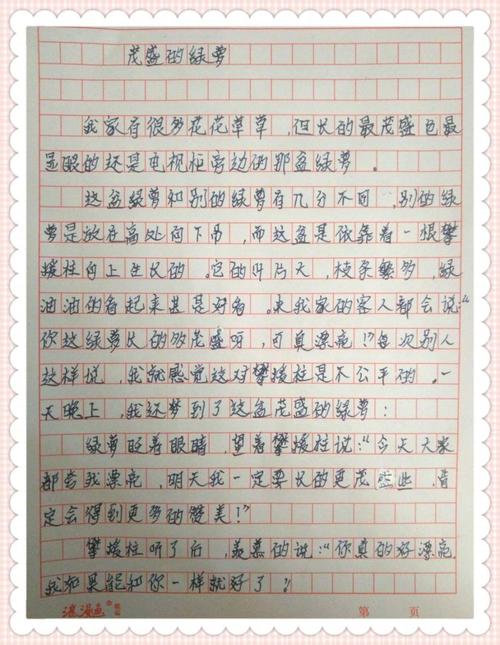 茂盛的绿萝
我家有很多花花草草，但长的最茂盛也最
显眼的还是电视柜旁边的那盆绿萝。
这盆绿萝和别的绿萝有几分不同，别的绿
萝是放在高处向下吊，而这盆是依靠着一根攀
援柱向上生长的。它的叶片大，枝条繁多，绿
油油的看起来甚是好看。来我家的客人都会说：“
你这绿萝长的多茂盛呀，可真漂亮！”每次别人
这样说，我就感觉这对攀援柱是不公平的。一
天晚上，我还梦到了这盆茂盛的绿萝：
绿萝眨着眼睛，望着攀援柱说：“今天大家
都尝我漂亮，明天我一定要长的更茂盛些，肯
定会得到更多的赞美！”
攀援柱听了后，羡慕的说：“你真的好漂亮
我如果能和你一样就好了！”
第 页